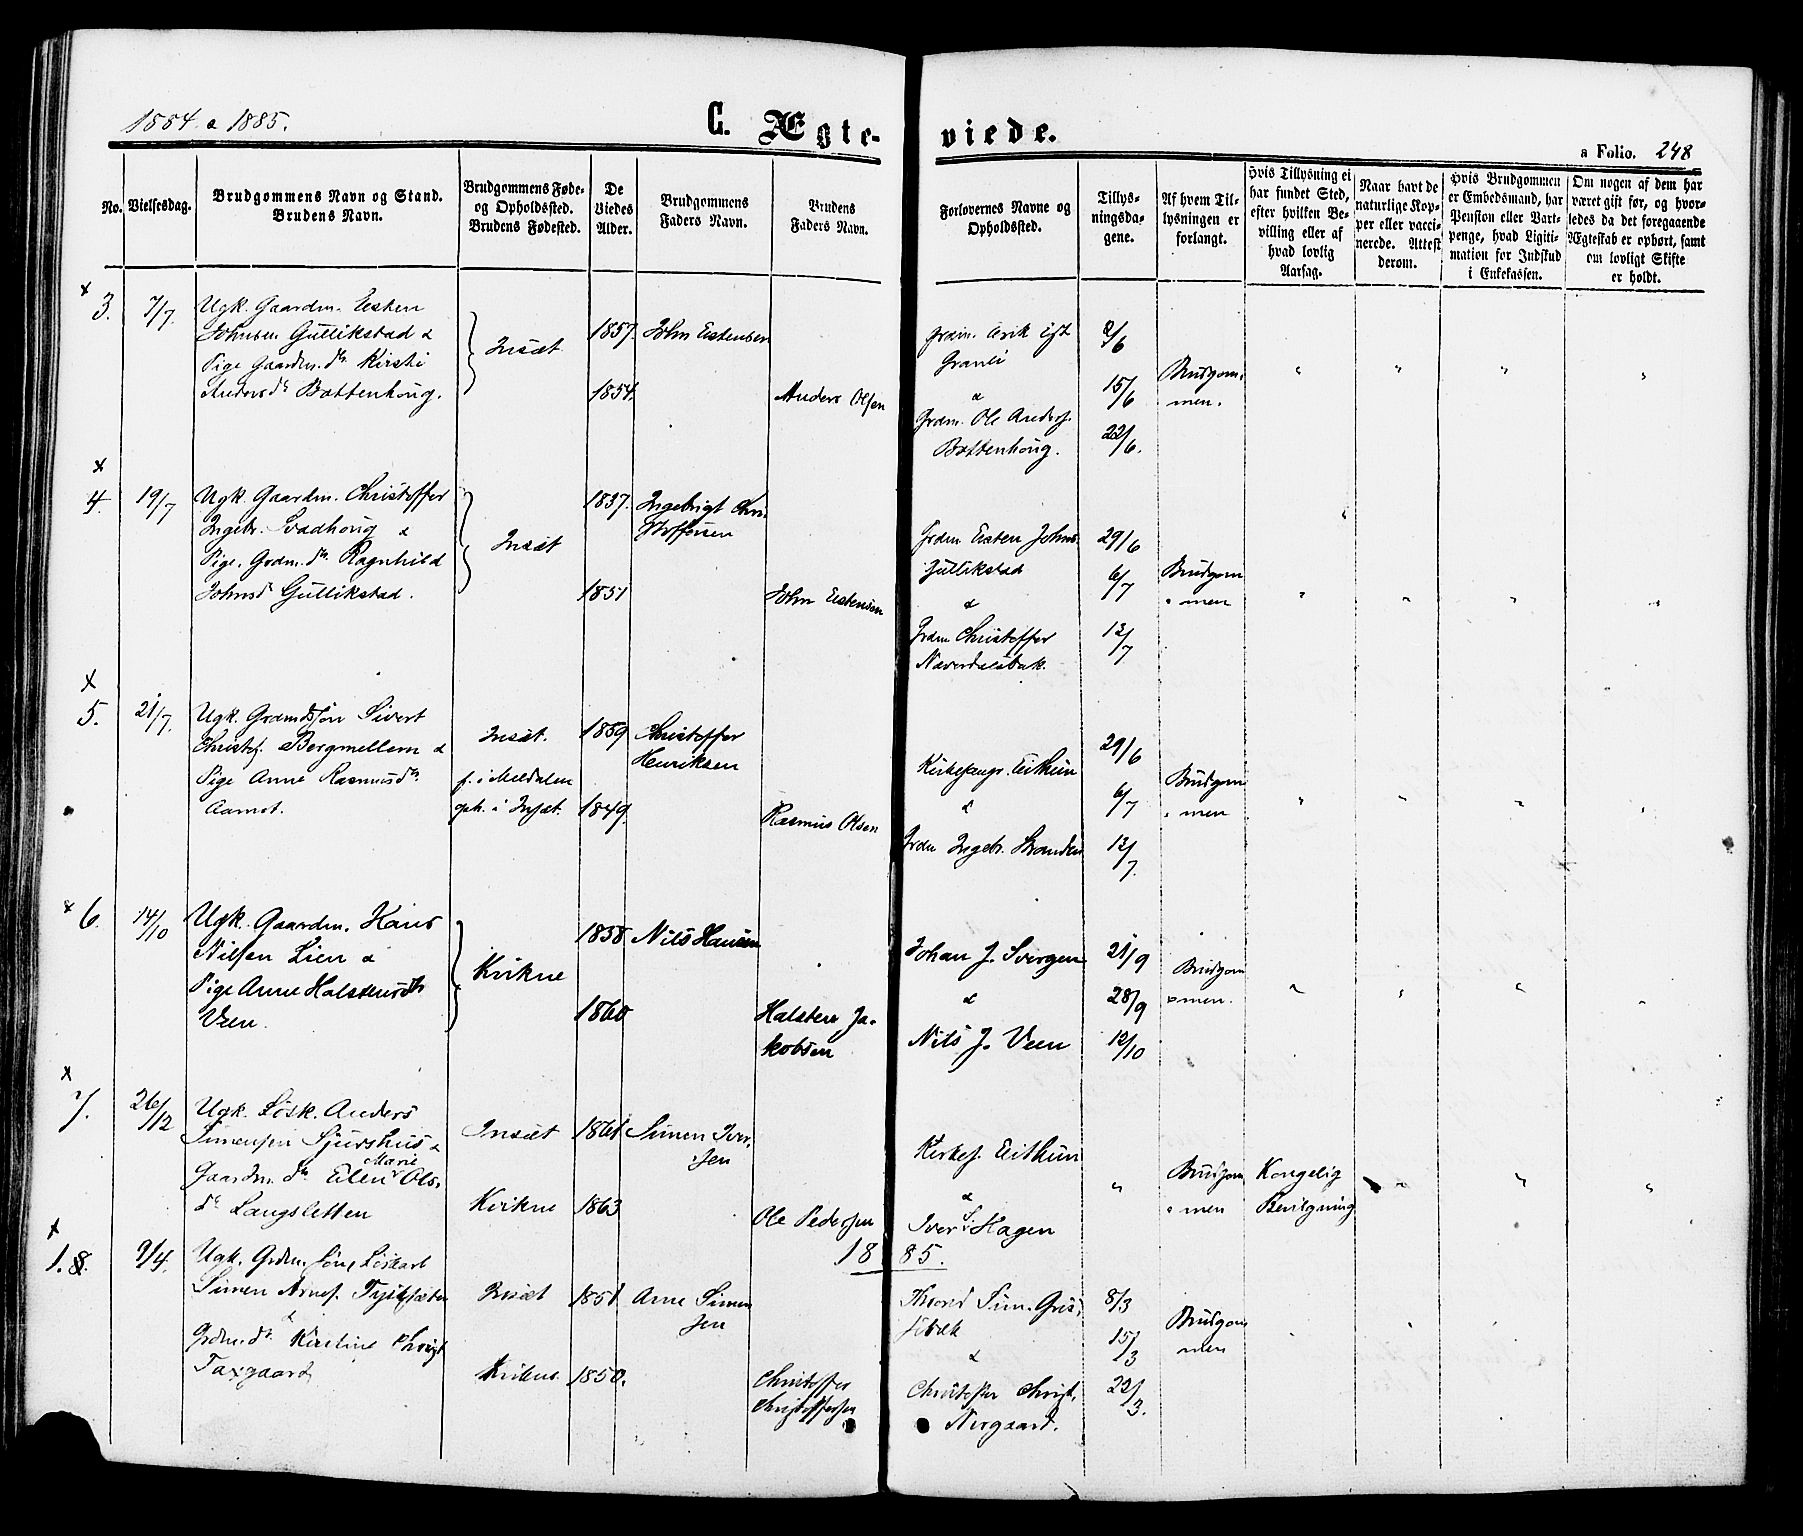 1884 a 1885.
C. Ægte-
viede.
a Folio. 248
No.
Vielsesdag.
Brudgommens Navn og Stand.
Brudens Navn.
Brudgommens Føde-
og Opholdssted.
Brudens Fødested.
De
Viedes
Alder.
Brudgommens
Faders Navn.
Brudens
Faders Navn.
Forlovernes Navne og
Opholdssted.
Tillys-
ningsda-
gene.
Af hvem Til-
lysningen er
forlangt.
Hvis Tillysning ei
har fundet Sted,
efter hvilken Be-
villing eller af
hvad lovlig
Aarsag.
Naar havt de
naturlige Kop-
per eller vacci-
nerede. Attest
derom.
Hvis Brudgommen
er Embedsmand, har
Pension eller Vart-
penge, hvad Ligiti-
mation for Indskud
i Enkekassen.
Om nogen af dem har
været gift før, og hvor-
ledes da det foregaaende
Ægteskab er ophørt, samt
om lovligt Skifte
er holdt.
x
3.
7/7.
Ugk. Gaardm. Eisten
Johnsen Gullikstad &
Pige Gaardm. dtr Kirsti
Andersdr Bottenhoug.
Insæt
1857.
1854.
John Estensen
Anders Olsen
Grdm.
Granli
&
Grdm. Ole Anders.
Bottenhoug.
8/6
15/6
22/6.
Brudgom-
men.
x
4.
19/7
Ugk. Gaardm. Christoffer
Ingebr. Svadhoug &
Pige, Grdm. dtr Ragnhild
Johnsd Gullikstad.
Insæt
1837.
1851
Ingebrigt Chri-
stoffersen
John Estensen
Grdm Eisten Johns
Gullikstad
&
Grdm Christoffer
Naverdalsbak.
29/6
6/7
13/7
Brudgom
men
x
5.
21/7.
Ugk. Grdmdssøn Sivert
Christof. Bergmellem &
Pige Anne Rasmusdtr
Aamot.
Insæt.
f. i Meldalen
oph. i Insæt.
1859
1849.
Christoffer
Henriksen
Rasmus Olsen
Kirkesang. Eithun
&
Grdm Ingebr. Stranden
29/6
6/7
13/7.
Brudgom
men
x
6.
14/10
Ugk. Gaardm. Hans
Nilsen Lien &
Pige Anne Halstensdtr
Veen.
Kvikne
1858
1860
Nils Hansen
Halsten Ja-
kobsen
Johan J. Svergen
&
Nils J. Veen
21/9
28/9
12/10
Brudgom
men.
x
7.
26/12
Ugk. Løsk. Anders
Simensen Sjurshus &
Marie
Gaardm. dtr Elen Ols-
dr Langsletten
Insæt
Kvikne
1861
1863
Simen Iver-
sen
Ole Pedersen
Kirkes. Eithun
&
Iver S. Hagen
Brudgom
men
Kongelig
Bevilgning
1885.
x
1. 8.
9/4.
Ugk. Grdm. Søn, Løskarl
Simen Arnes.
&
Grdm. dtr Kirstine Christ
Taxgaard
Insæt
Kvikne
1851
1850.
Arne Simen
sen
Christoffer
Christoffersen
Thorvd Sim.
&
Christoffer Christ.
Nirgaard.
8/3
15/3
22/3.
Brudgom
men